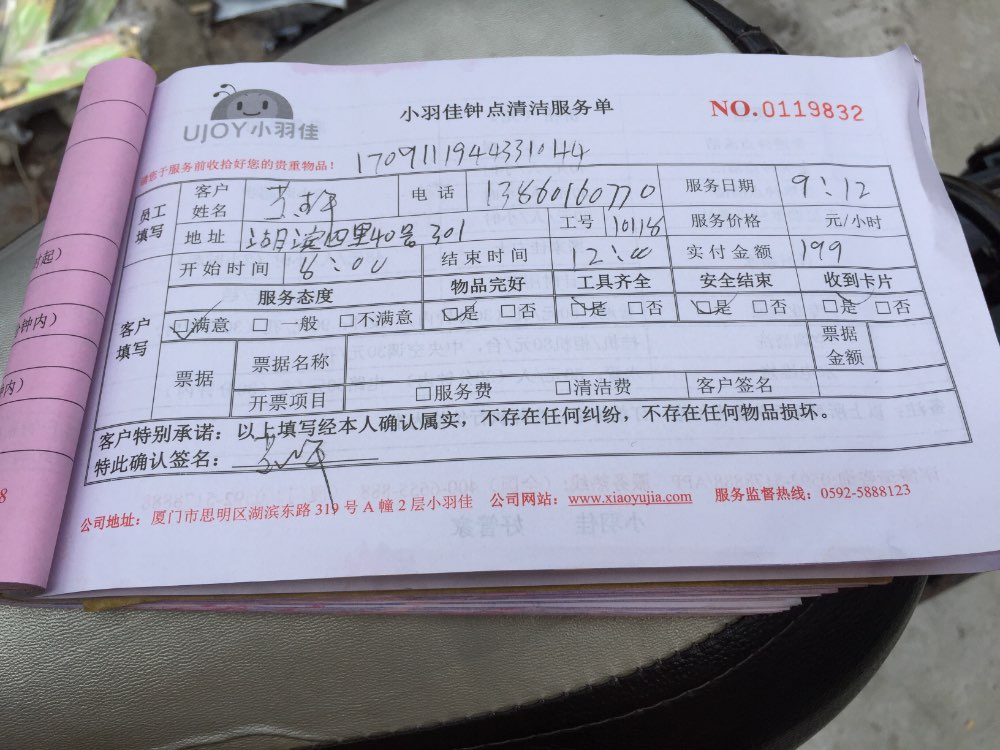 UJOY小羽佳
小羽佳钟点清洁服务单
NO.0119832
请您于服务前收拾好您的贵重物品！
1709111944331044
员工填写 客户姓名 电话 13860160770 服务日期 9:12
地址 湖滨四里40号301 工号 10118 服务价格 元/小时
开始时间 8:00 结束时间 12:00 实付金额 199
客户填写 服务态度 物品完好 工具齐全 安全结束 收到卡片
□满意 □一般 □不满意 □是 □否 □是 □否 □是 □否 □是 □否
票据 票据名称 票据金额
开票项目 □服务费 □清洁费 客户签名
客户特别承诺：以上填写经本人确认属实，不存在任何纠纷，不存在任何物品损坏。
特此确认签名：
公司地址：厦门市思明区湖滨东路319号A幢2层小羽佳 公司网站：www.xiaoyujia.com 服务监督热线：0592-5888123
时起）
钟内）
内）
8